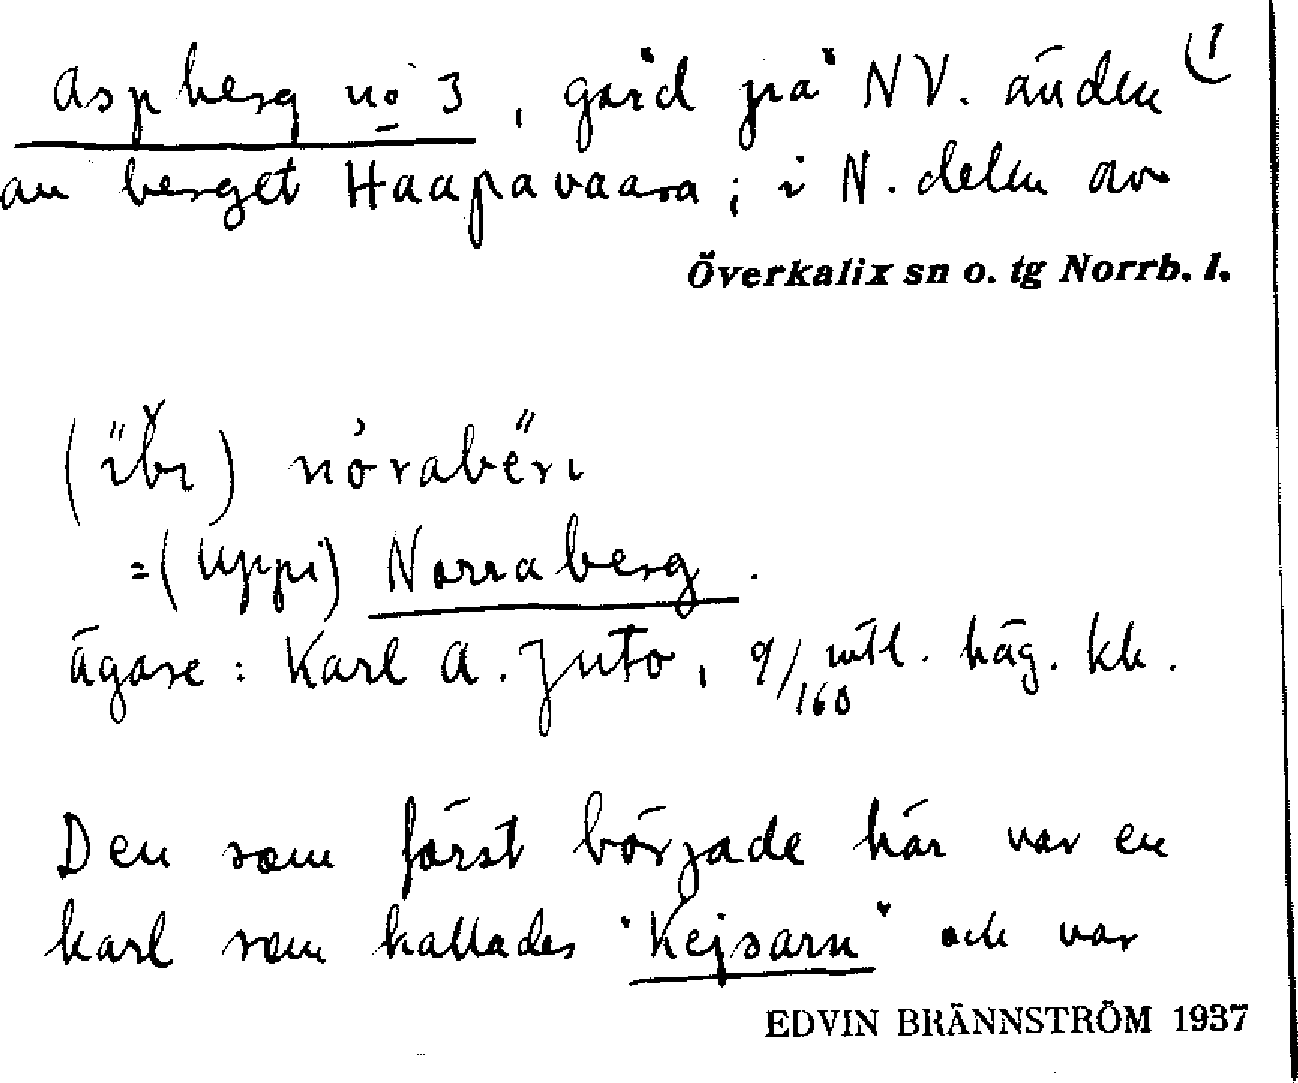 Aspberg no 3, gård på NV. änden (1
av berget Haapavaara; i N. delen av
Överkalix sn o. tg Norrb. l.
nòrabëri
=(uppi) Norraberg.
ägare: Karl A. Juto, 9/160 mtl. häg. kk.
Den som först började här var en
karl som kallades "Kejsarn" och var
EDVIN BRÄNNSTRÖM 1937